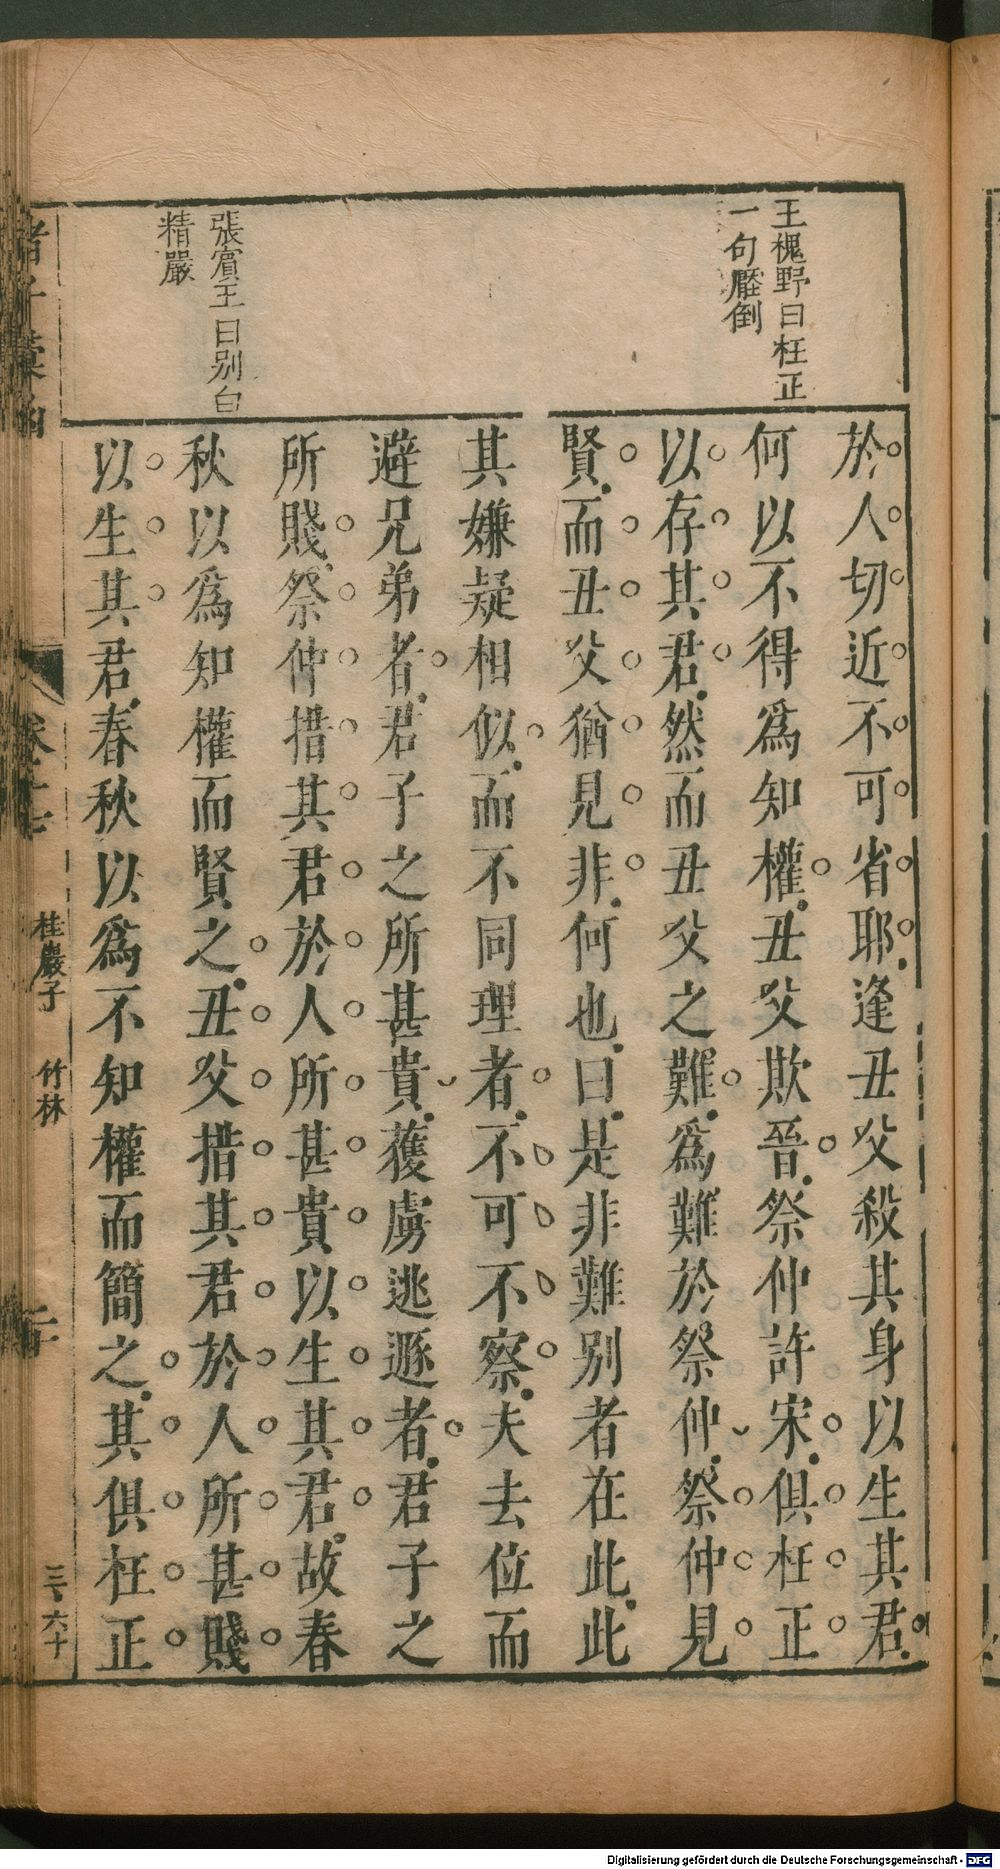 王槐野曰枉正
一句壓倒
張賓王曰别白
精嚴
於人切近不可省耶逢丑父殺其身以生其君
何以不得爲知權丑父欺晉祭仲許宋俱枉正
以存其君然而丑父之難爲難於祭仲祭仲見
賢而丑父猶見非何也曰是非難别者在此此
其嫌疑相似而不同理者不可不察夫去位而
避兄弟者君子之所甚貴獲虜逃遯者君子之
所賤祭仲措其君於人所甚貴以生其君故春
秋以爲知權而賢之丑父措其君於人所甚賤
以生其君春秋以爲不知權而簡之其俱枉正
桂巖子
竹林
三、六十
Digitalisierung gefördert durch die Deutsche Forschungsgemeinschaft - DFG